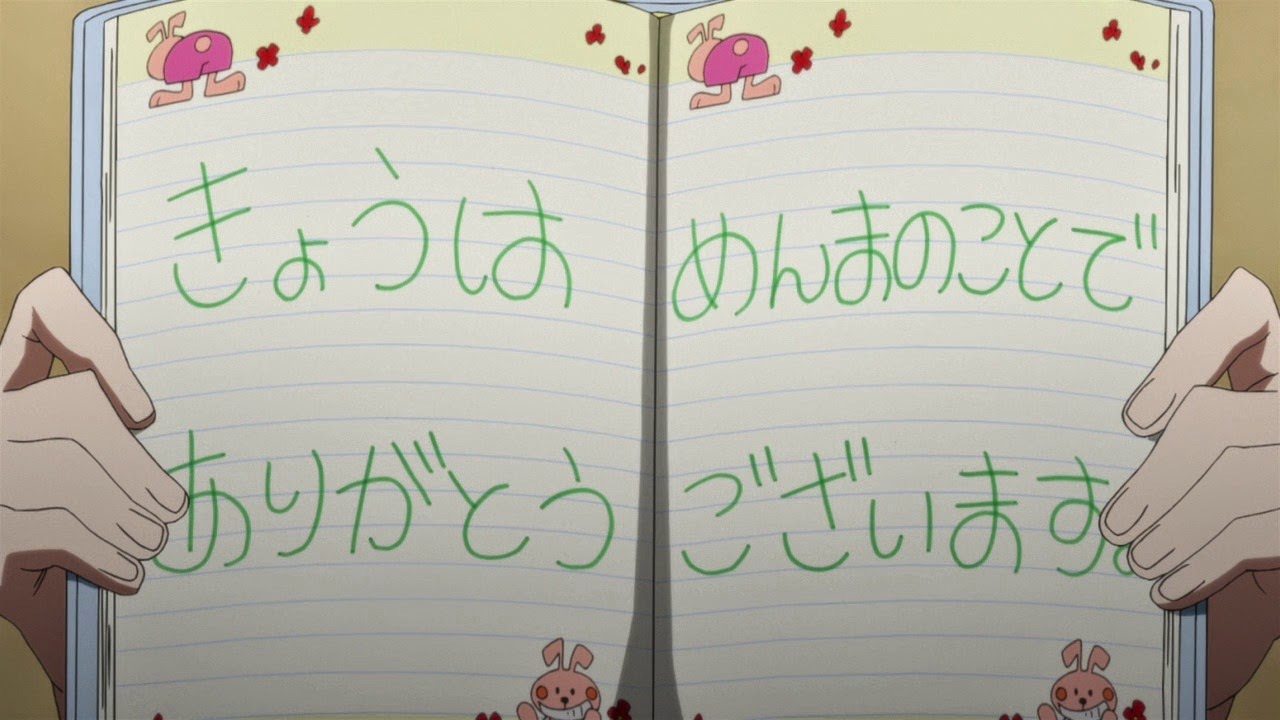 きょうは めんまのことで
ありがとう ございます。